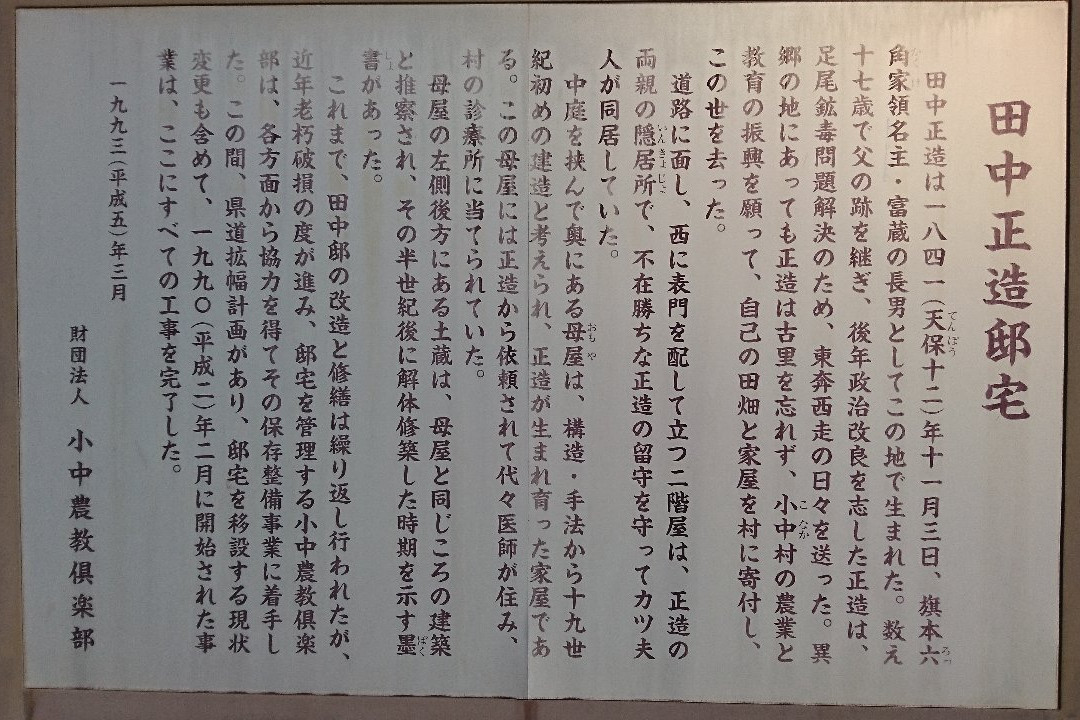 田中正造邸宅
田中正造は一八四一(天保十二)年十一月三日、旗本六
角家領名主・富蔵の長男としてこの地で生まれた。数え
十七歳で父の跡を継ぎ、後年政治改良を志した正造は、
足尾鉱毒問題解決のため、東奔西走の日々を送った。異
郷の地にあっても正造は古里を忘れず、小中村の農業と
教育の振興を願って、自己の田畑と家屋を村に寄付し、
この世を去った。
道路に面し、西に表門を配して立つ二階屋は、正造の
両親の隠居所で、不在勝ちな正造の留守を守ってカツ夫
人が同居していた。
中庭を挟んで奥にある母屋は、構造・手法から十九世
紀初めの建造と考えられ、正造が生まれ育った家屋であ
る。この母屋には正造から依頼されて代々医師が住み、
村の診療所に当てられていた。
母屋の左側後方にある土蔵は、母屋と同じころの建築
と推察され、その半世紀後に解体修築した時期を示す墨
書があった。
これまで、田中邸の改造と修繕は繰り返し行われたが、
近年老朽破損の度が進み、邸宅を管理する小中農教倶楽
部は、各方面から協力を得てその保存整備事業に着手し
た。この間、県道拡幅計画があり、邸宅を移設する現状
変更も含めて、一九九〇(平成二)年二月に開始された事
業は、ここにすべての工事を完了した。
一九九三(平成五)年三月
財団法人 小中農教倶楽部